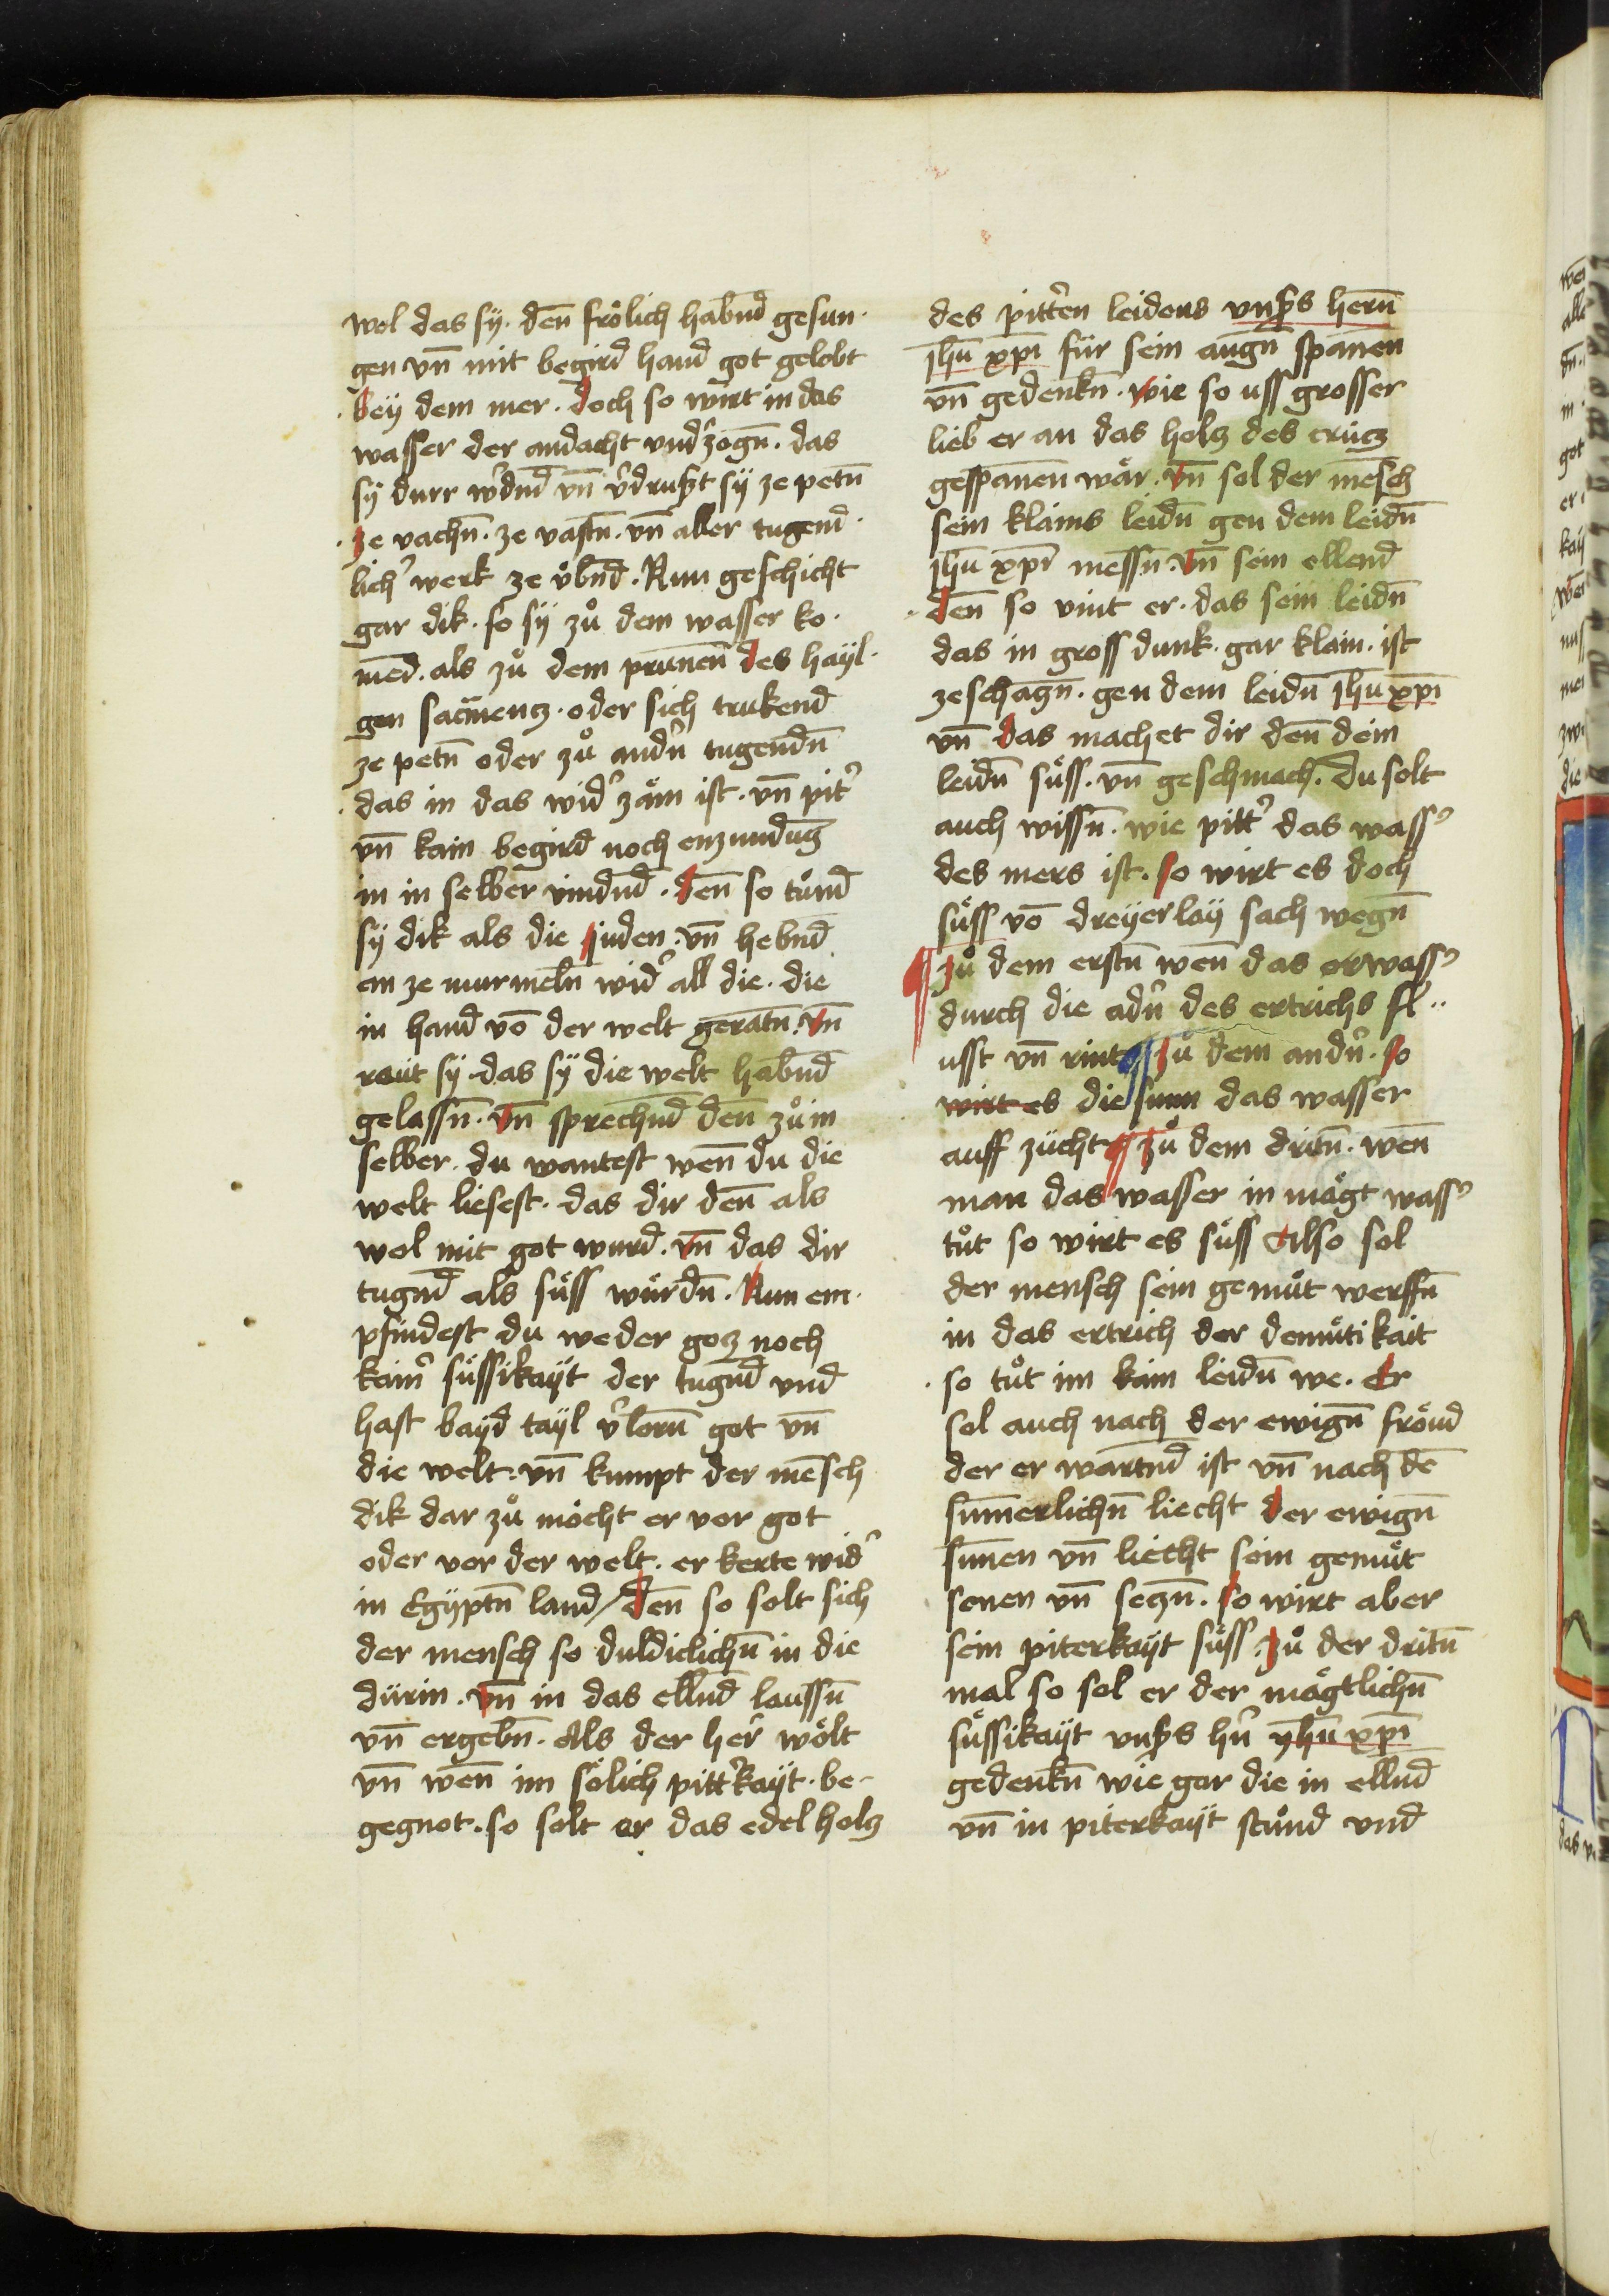 wol das sÿ · den̄ frölich habn̄d gesun ·
gen vn̄ mit begird hand got gelobt
· beÿ dem mer · doch so wirt in das
wasser der andacht vnd'zogn̄ · das
sÿ durr w'dn̄d vn̄ v'drußt sÿ ze petn̄
· ze vachn̄ · ze vastn̄ · vn̄ aller tugend ·
lich' werk ze v̈bn̄d · Nun geschicht
gar dik · so sÿ zů dem wasser ko ·
men̄d · als zů dem prunen̄ des hayl ·
gen sacmentz · oder sich trukend
ze petn̄ oder zů andn̄ tugendn̄
· das in das wid' zäm ist · vn̄ pit'
vn̄ kain begird noch enzundūg
in in selber vindn̄d · den̄ so tůnd
sÿ dik als die juden · vn̄ hebn̄d
an ze murmeln̄ wid' all die · die
in hand vō der welt geratn̄ · vn̄
reüt sÿ · das sÿ die welt habn̄d
gelassn̄ · vn̄ sprechn̄d den̄ zů in
selber · du wantest wen̄ du die
welt liesest · das dir den̄ als
wol mit got wurd · vn̄ das dir
tugn̄d als süss würdn̄ · Nun em ·
pfindest du weder gotz noch
kain' süssikaÿt der tugn̄d vnd
hast bayd tayl v'lorn̄ got vn̄
die welt · vn̄ kumpt der mēsch
dik dar zů möcht er vor got
oder vor der welt · er kerte wid'
in Egÿptn̄ land / den̄ so solt sich
der mensch so duldiclichn̄ in die
dürin · vn̄ in das elln̄d laussn̄
vn̄ ergebn̄ · Als der her' wölt
vn̄ wen̄ im sölich pitt'kaÿt · be-
gegnot · so solt er das edel holtz
des pitt'en leidens vnß's hern̄
jhū xp̄i für sein augn̄ spanen
vn̄ gedenkn̄ · wie so uss grosser
lieb er an das holtz des crütz
gespanen̄ wär · vn̄ sol der mēsch
sein klains leidn̄ gen dem leidn̄
jhū xp̄i messn̄ · vn̄ sein ellend
· den̄ so vint er · das sein leidn̄
das in gross dunk · gar klain · ist
ze schagn̄ · gen dem leidn̄ jhū xp̄i
vn̄ das machet dir den̄ dein
leidn̄ süss · vn̄ geschmach · du solt
auch wissn̄ · wie pitt' das wass'
des mers ist · so wirt es doch
süss vō dreÿerlaÿ sach wegn̄
¶ zů dem erstn̄ wen̄ das er wass'
durch die adn̄ des ertrichs fl ··
usst vn̄ rint ¶ zů dem andn̄ · so
wirt es die sunn das wasser
auff zücht ¶ zů dem dritn̄ · wen̄
man das wasser in mägt wass'
tůt so wirt es süss Also sol
der mensch sein gemüt werffn̄
in das ertrich der demütikait
· so tůt im kain leidn̄ we · Er
sol auch nach der ewign̄ fröud
der er wartn̄d ist vn̄ nach dē
sum̄erlichn̄ liecht der ewign̄
sunen vn̄ liecht sein gemüt
senen vn̄ setzn̄ · so wirt aber
sein piterkaÿt süss · zů der dritn̄
mal so sol er der mägtlichn̄
süssikaÿt vnß's hn̄ yhū xp̄i
gedenkn̄ wie gar die in elln̄d
vn̄ in piterkaÿt stůnd vnd